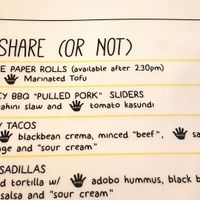 SHARE (OR NOT)
E PAPER ROLLS (available after 2.30pm)
MARINATED TOFU
CY BBQ "PULLED PORK" SLIDERS
ahini slaw and tomato kasundi
Y TACOS
blackbean crema, minced "beef", sa
ge and "sour cream"
SADILLAS
d tortilla w/ adobo hummus, black b
salsa and "sour cream"